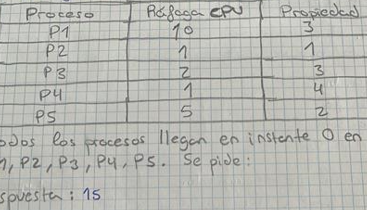 Proceso Ráfaga CPU Propiedad
P1 10 3
P2 1 1
P3 2 3
P4 1 4
P5 5 2
odos los procesos llegan en instante 0 en
1, P2, P3, P4, P5. Se pide:
spuesta: 15